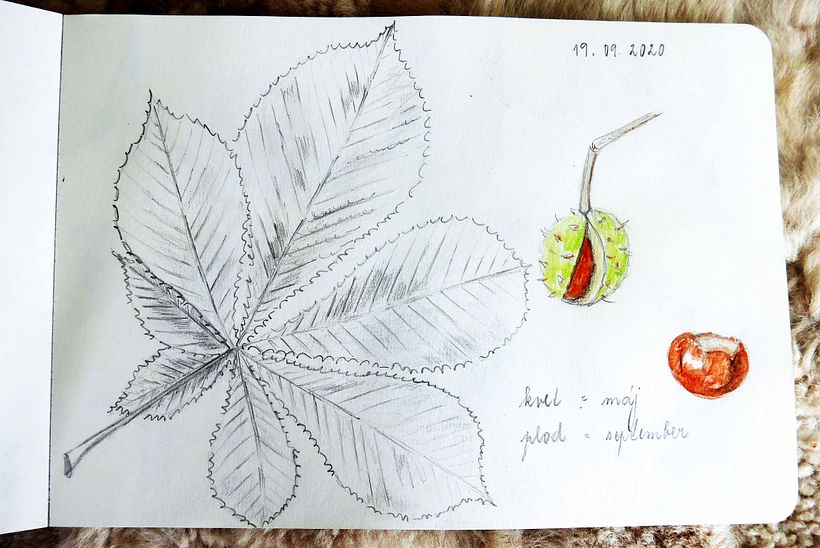 19. 09. 2020
kvet = máj
plod = september